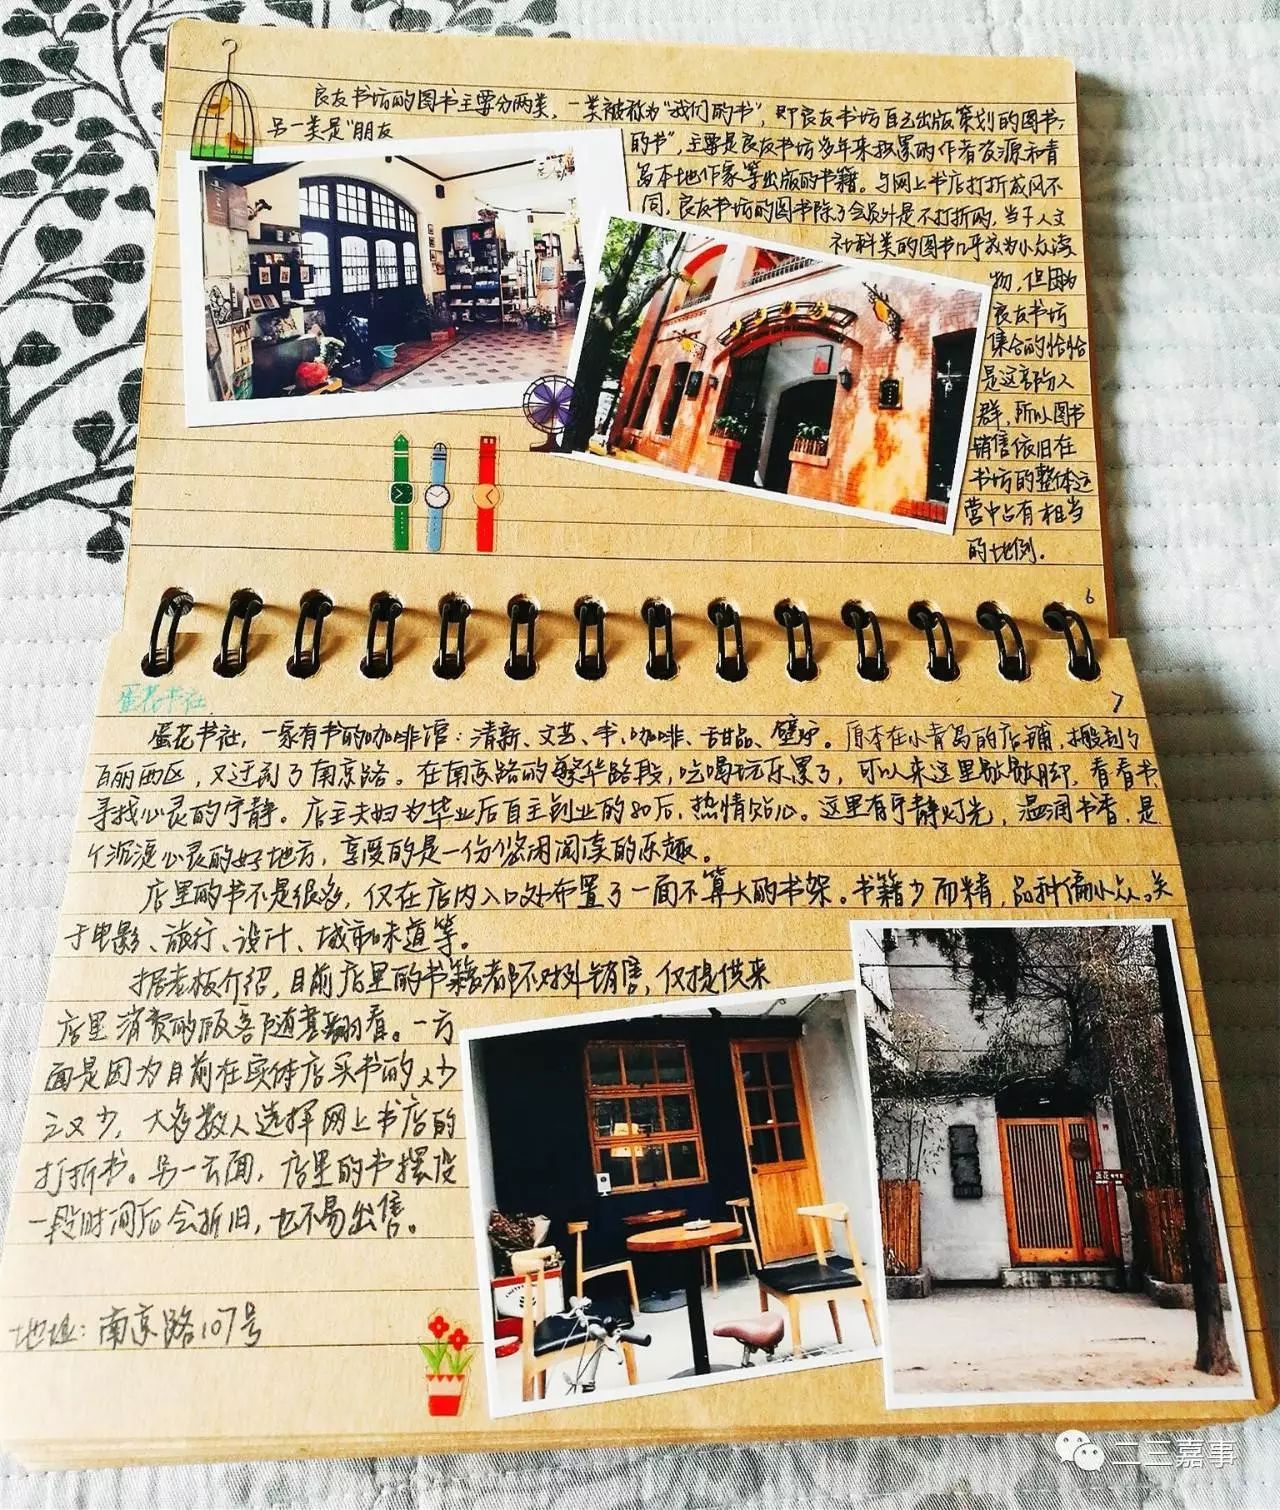 良友书坊的图书主要分两类，一类被称为"我们的书"，即良友书坊自己出版策划的图书；
另一类是"朋友
的书"，主要是良友书坊多年来积累的作者资源和青
岛本地作家等出版的书籍。与网上书店打折成风不
同，良友书坊的图书除了会员外是不打折的，当下人文
社科类的图书几乎成为小众读
物，但因为
良友书坊
集合的恰恰
是这部分人
群，所以图书
销售依旧在
书坊的整体运
营中占有相当
的比例.
6
蛋花书社
7
蛋花书社，一家有书的咖啡馆：清新、文艺、书、咖啡、甜品、壁炉。原本在小青岛的店铺，搬到了
百丽西区，又迁到了南京路。在南京路的繁华路段，吃喝玩乐累了，可以来这里歇歇脚，看看书，
寻找心灵的宁静。店主夫妇为毕业后自主创业的80后，热情贴心。这里有宁静灯光，温润书香，是
个沉淀心灵的好地方，享受的是一份悠闲阅读的乐趣。
店里的书不是很多，仅在店内入口处布置了一面不算大的书架。书籍少而精，品种偏小众。关
于电影、旅行、设计、城市味道等。
据老板介绍，目前店里的书籍都不对外销售，仅提供来
店里消费的顾客随意翻看。一方
面是因为目前在实体店买书的人少
之又少，大多数人选择网上书店的
打折书。另一方面，店里的书摆设
一段时间后会折旧，也不易出售。
地址：南京路107号
二三嘉事